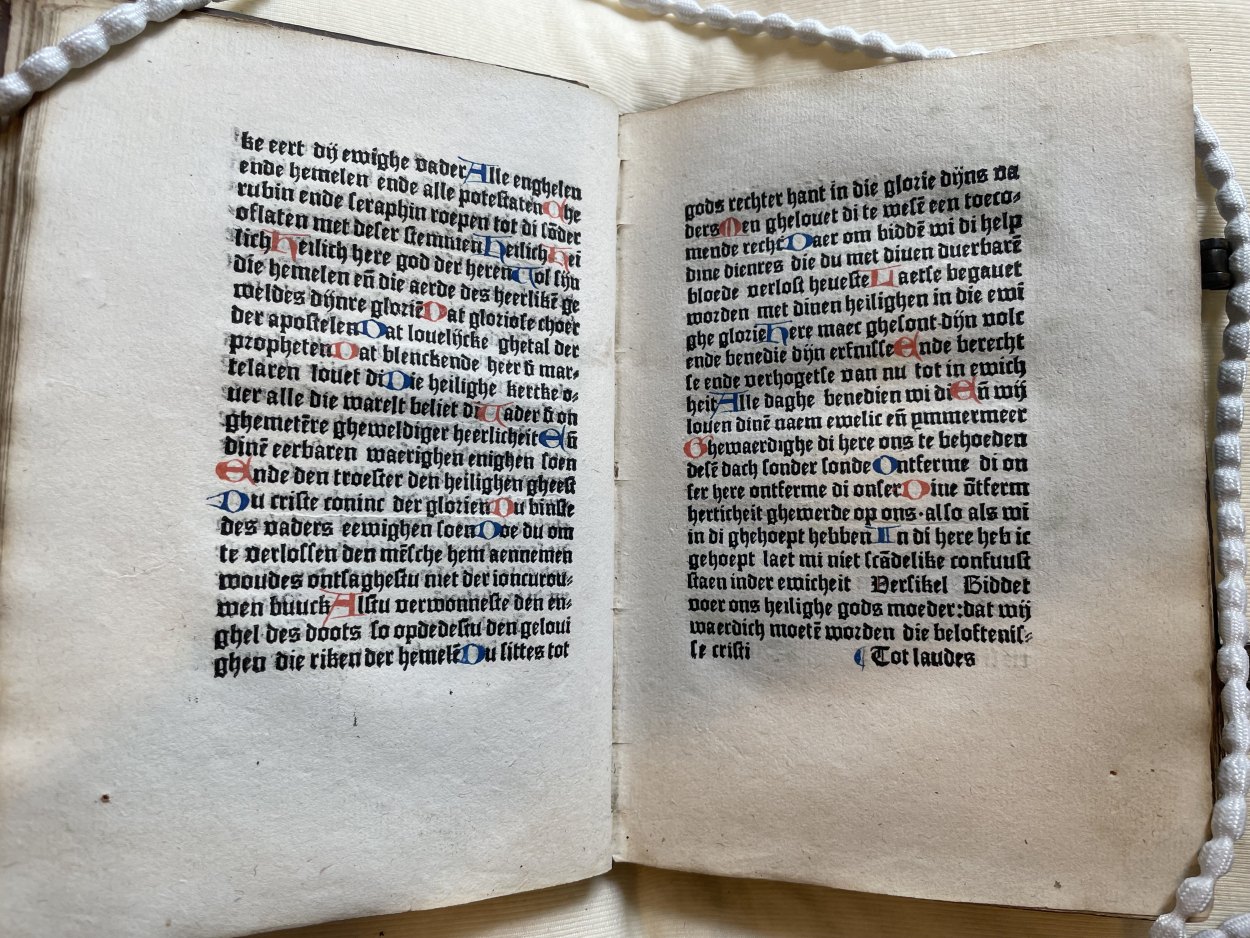 ke eert dij ewighe vader Alle enghelen
ende hemelen ende alle potestaten Che
rubin ende seraphin roepen tot di sōder
oflaten met deser stemmen heilich hei
lich heilich here god der heren Vol sijn
die hemelen eñ die aerde des heerlikē ge
weldes dijnre glorie Dat gloriose choer
der apostelen Dat louelijcke ghetal der
propheten Dat blenckende heer đ mar-
telaren louet di Die heilighe kercke o-
uer alle die warelt beliet di Vader đ on
ghemetēre gheweldiger heerlicheit Eñ
dinē eerbaren waerighen enighen soen
Ende den troester den heilighen gheest
Du criste coninc der glorien Du binste
des vaders eewighen soen Doe du om
te verlossen den mēsche hem aennemen
woudes ontsaghestu niet der ioncurou-
wen buuck Alstu verwonneste den en-
ghel des doots so opdedestu den geloui
ghen die riken der hemelē Du sittes tot
gods rechter hant in die glorie dijns va
ders Men ghelouet di te wesē een toeco-
mende rechtr Daer om biddē wi di help
dine dienres die du met diuen duerbarē
bloede verlost heueste Laetse begauet
worden met dinen heilighen in die ewi
ghe glorie Here maec ghesont dijn volc
ende benedie dijn erfnisse Ende berecht
se ende verhogetse van nu tot in ewich
heit Alle daghe benedien wi di Eñ wij
louen dinē naem ewelic eñ ymmermeer
Ghewaerdighe di here ons te behoeden
desē dach sonder sonde Ontferme di on
ser here ontferme di onser Dine ōtferm
herticheit ghewerde op ons·also als wi
in di ghehoept hebben In di here heb ic
gehoept laet mi niet scādelike confuust
staen inder ewicheit Versikel Biddet
voer ons heilighe gods moeder:dat wij
waerdich moetē worden die beloftenis-
se cristi ⸿ Tot laudes